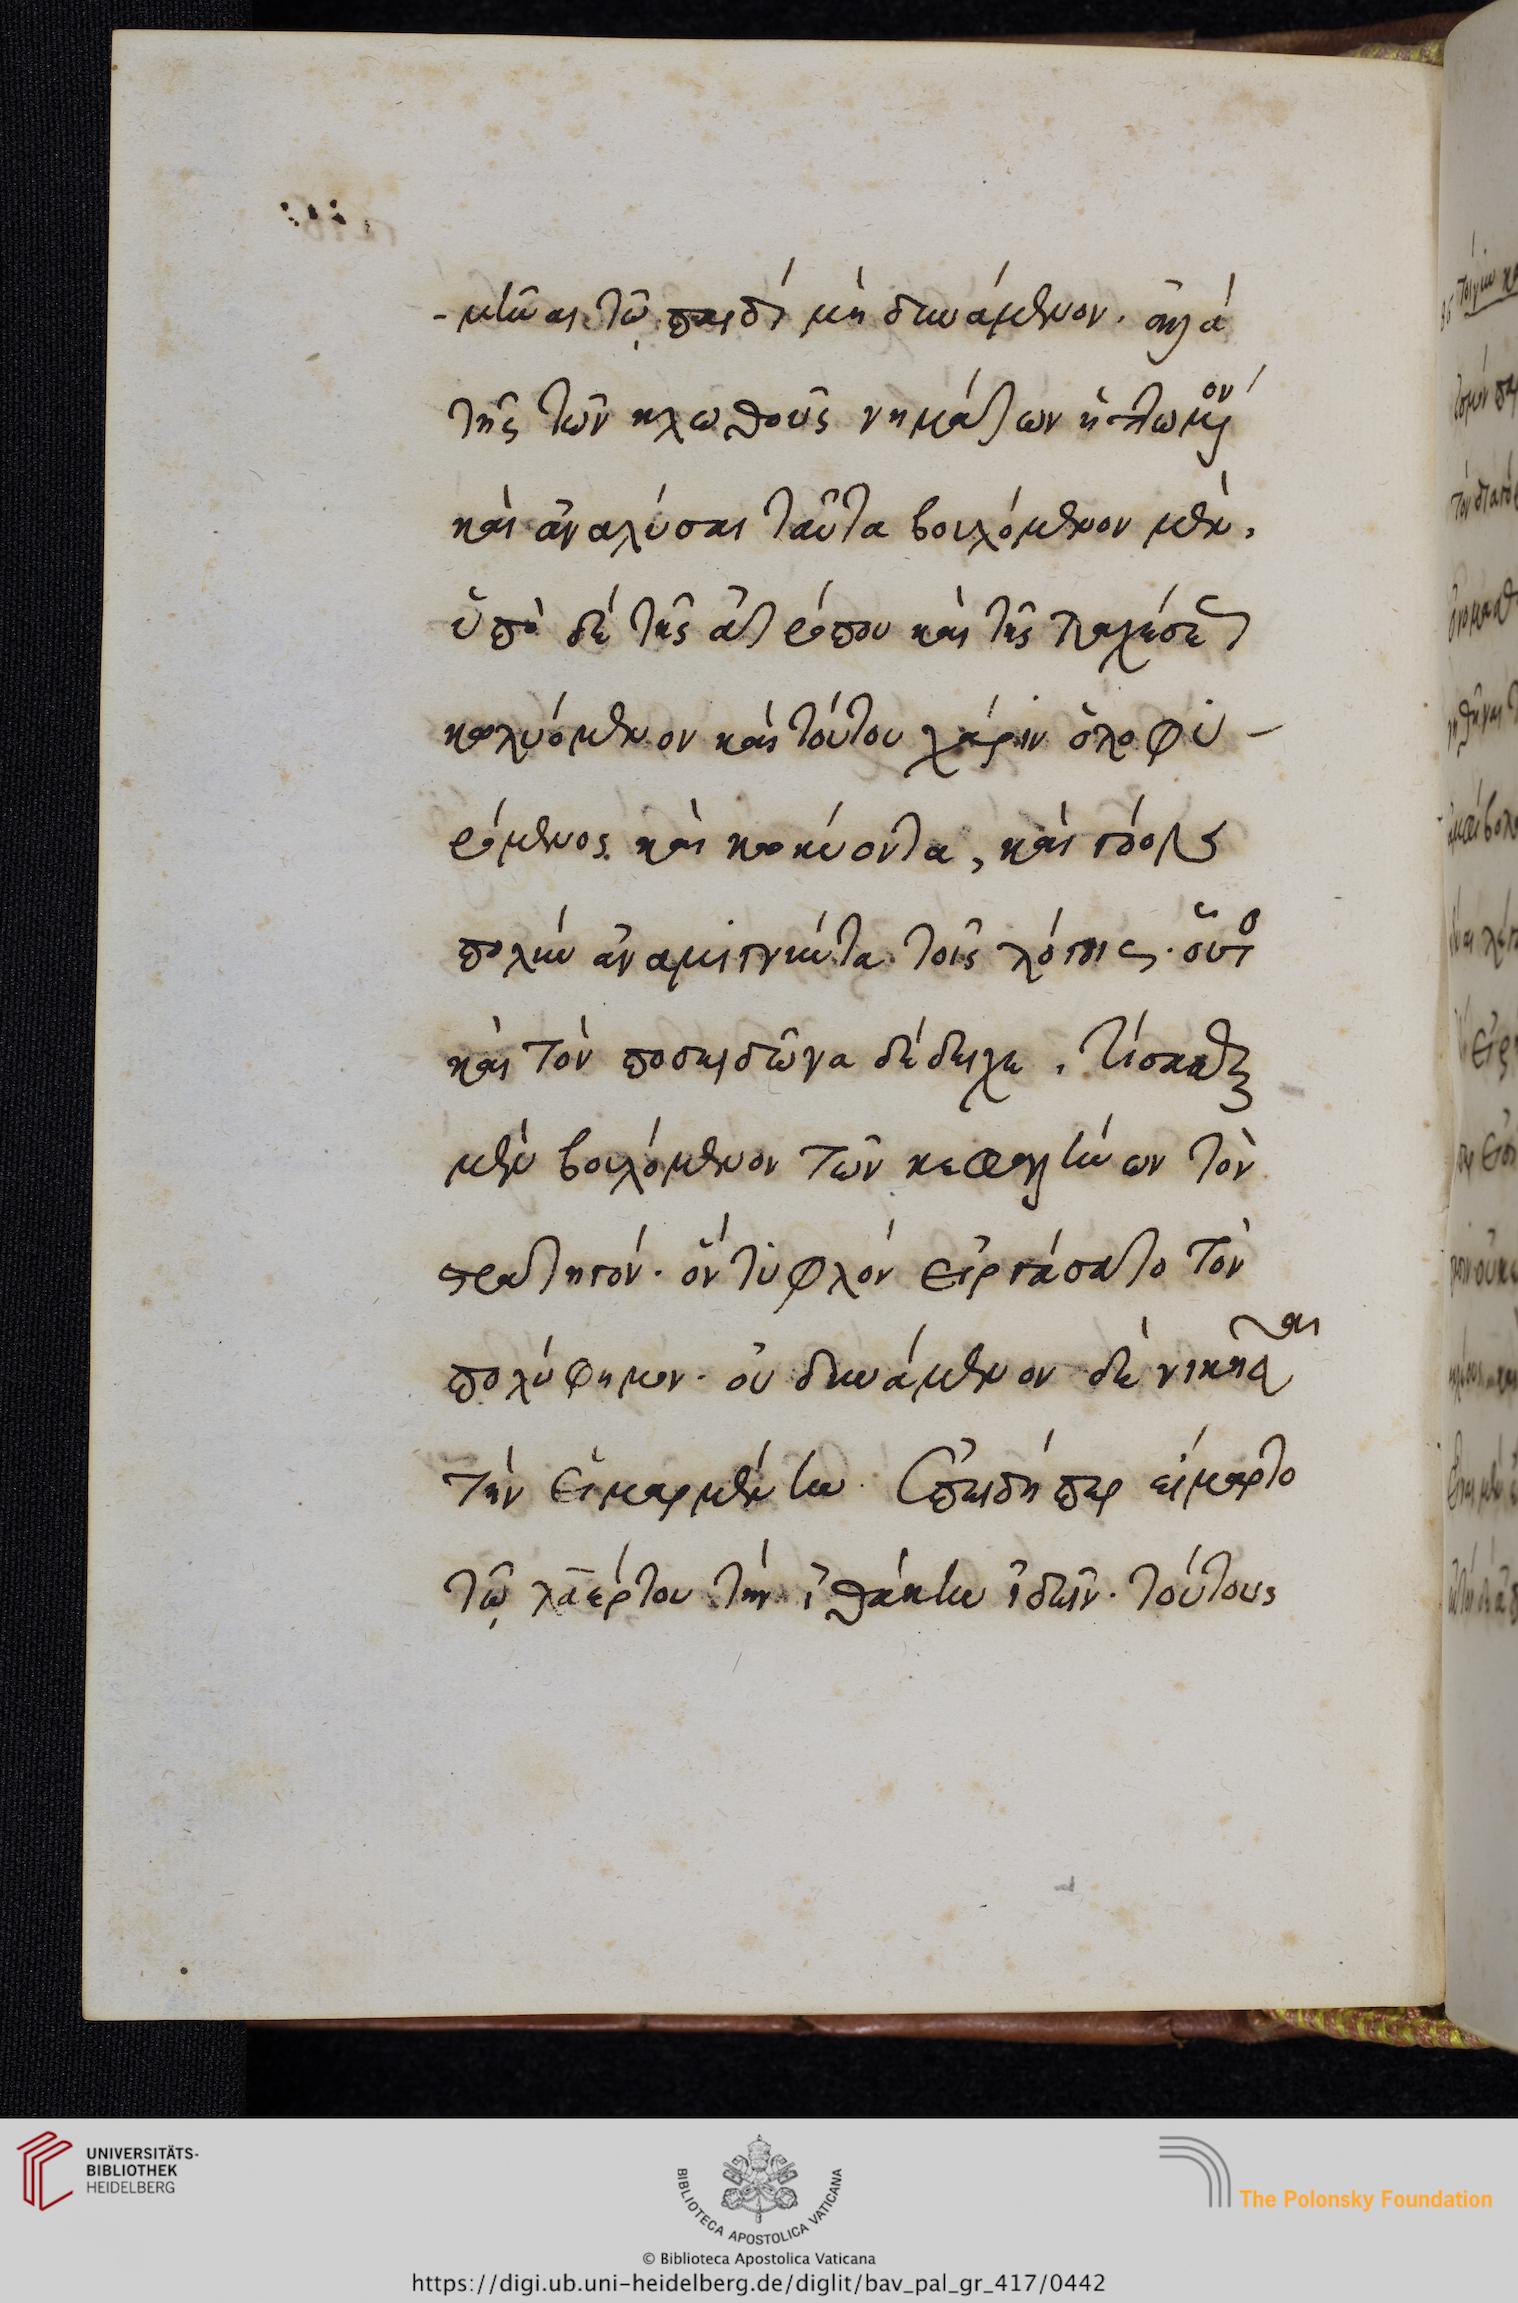 -μῦναι τῷ παιδὶ μὴ δυνάμενον. ἀλλὰ
τῆς τῶν κλωθοῦς νημάτων ἡττώμενον
καὶ ἀναλύσαι ταῦτα βουλόμενον μὲν,
ὑπὸ δὲ τῆς ἀτρόπου καὶ τῆς λαχέσεως
κωλυόμενον καὶ τούτου χάριν ὀλοφυ-
ρόμενος καὶ κωκύοντα, καὶ
πολὺν ἀναμιγνύντα τοῖς λόγοις. οὗτος
καὶ τὸν ποσειδῶνα δέδειχε. τίσασθαι
μὲν βουλόμενον τῶν κεφαλλήνων τὸν
στρατηγόν. ὃν τυφλὸν εἰργάσατο τὸν
πολύφημον. οὐ δυνάμενον δὲ νικῆσαι
τὴν εἱμαρμένην. ἐπειδήπερ εἵμαρτο
τῷ λαέρτου τὴν ἰθάκην ἰδεῖν. τούτους
UNIVERSITÄTS-
BIBLIOTHEK
HEIDELBERG
BIBLIOTECA APOSTOLICA VATICANA
The Polonsky Foundation
© Biblioteca Apostolica Vaticana
https://digi.ub.uni-heidelberg.de/diglit/bav_pal_gr_417/0442